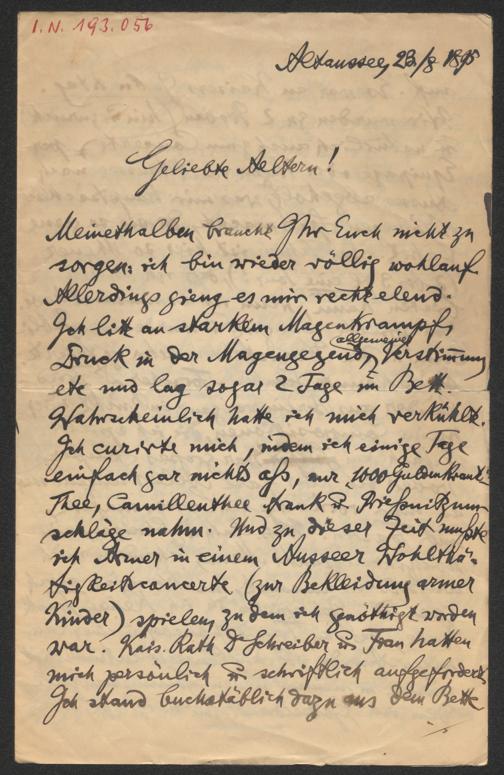 I.N. 193.056
Altaussee, 23./8 1895
Geliebte Aeltern!
Meinethalben braucht Ihr Euch nicht zu
sorgen: ich bin wieder völlig wohlauf.
Allerdings gieng es mir recht elend.
Ich litt an starkem Magenkrampf,
allgemeiner
Druck in der Magengegend, Verstimmung
etc und lag sogar 2 Tage im Bett.
Wahrscheinlich hatte ich mich verkühlt.
Ich curirte mich, indem ich einige Tage
einfach gar nichts aß, nur 1000Guldenkraut-
Thee, Camillenthee trank u. Prießnitzum-
schläge nahm. Und zu dieser Zeit mußte
ich Armer in einem Ausseer Wohlthä-
tigkeitsconcerte (zur Bekleidung armer
Kinder) spielen, zu dem ich genöthigt worden
war. Kais. Rath Dr Schreiber u. Frau hatten
mich persönlich u. schriftlich aufgefordert.
Ich stand buchstäblich dazu aus dem Bette